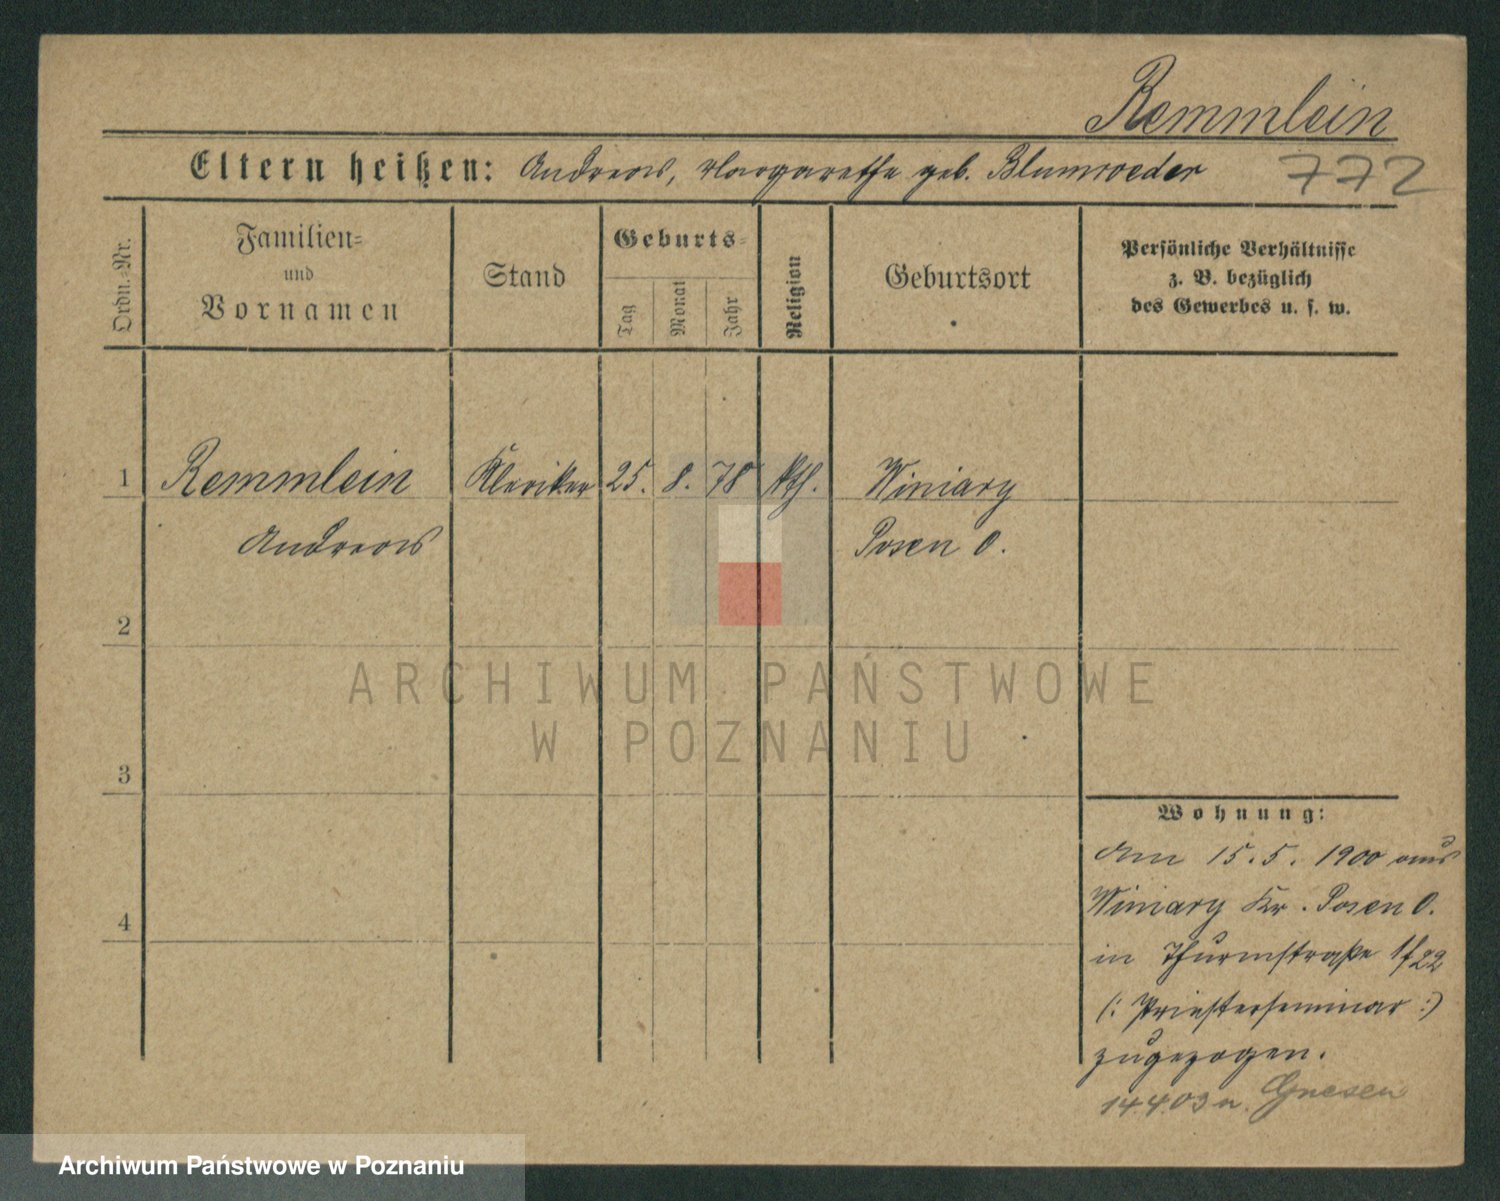 Remmlein
Eltern heißen: Andreas, Margarethe geb. Blumroeder 772
Ordn.-Nr.
Familien-
und
Vornamen
Stand
Geburts-
Tag
Monat
Jahr
Religion
Geburtsort
Persönliche Verhältnisse
z. B. bezüglich
des Gewerbes u. s. w.
1 Remmlein Kleriker 25. 8. 78 kth. Winiary
Andreas Posen O.
2
3
4
Wohnung:
Am 15.5. 1900 aus
Winiary Kr. Posen O.
in Thurmstraße 1/22
(: Priesterseminar :)
zugezogen.
14403 n. Gnesen
ARCHIWUM PAŃSTWOWE
W POZNANIU
Archiwum Państwowe w Poznaniu